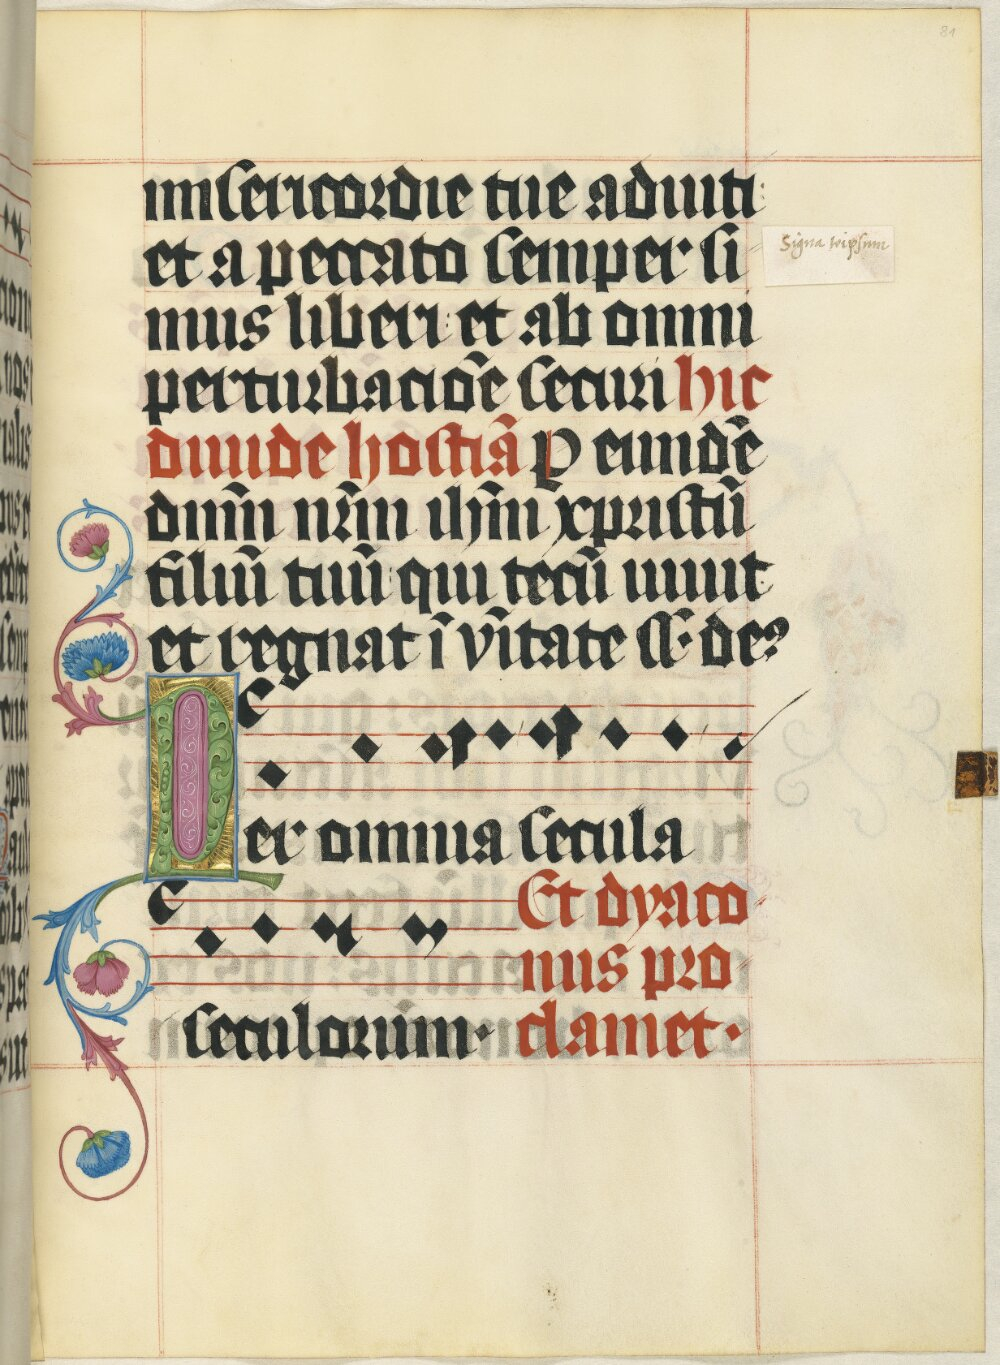 81
misericordie tue adiuti:
et a peccato semper si
mus liberi: et ab omni
perturbacioē securi hic
diuide hostiā P eundē
dnm̄ nr̄m ihm̄ xpristū
filiū tuū qui tecū uiuit
et regnat ī vn̄itate ss· de?
Signa teipsum
Per omnia secula
Et dyaco
nus pro
seculorum· clamet·